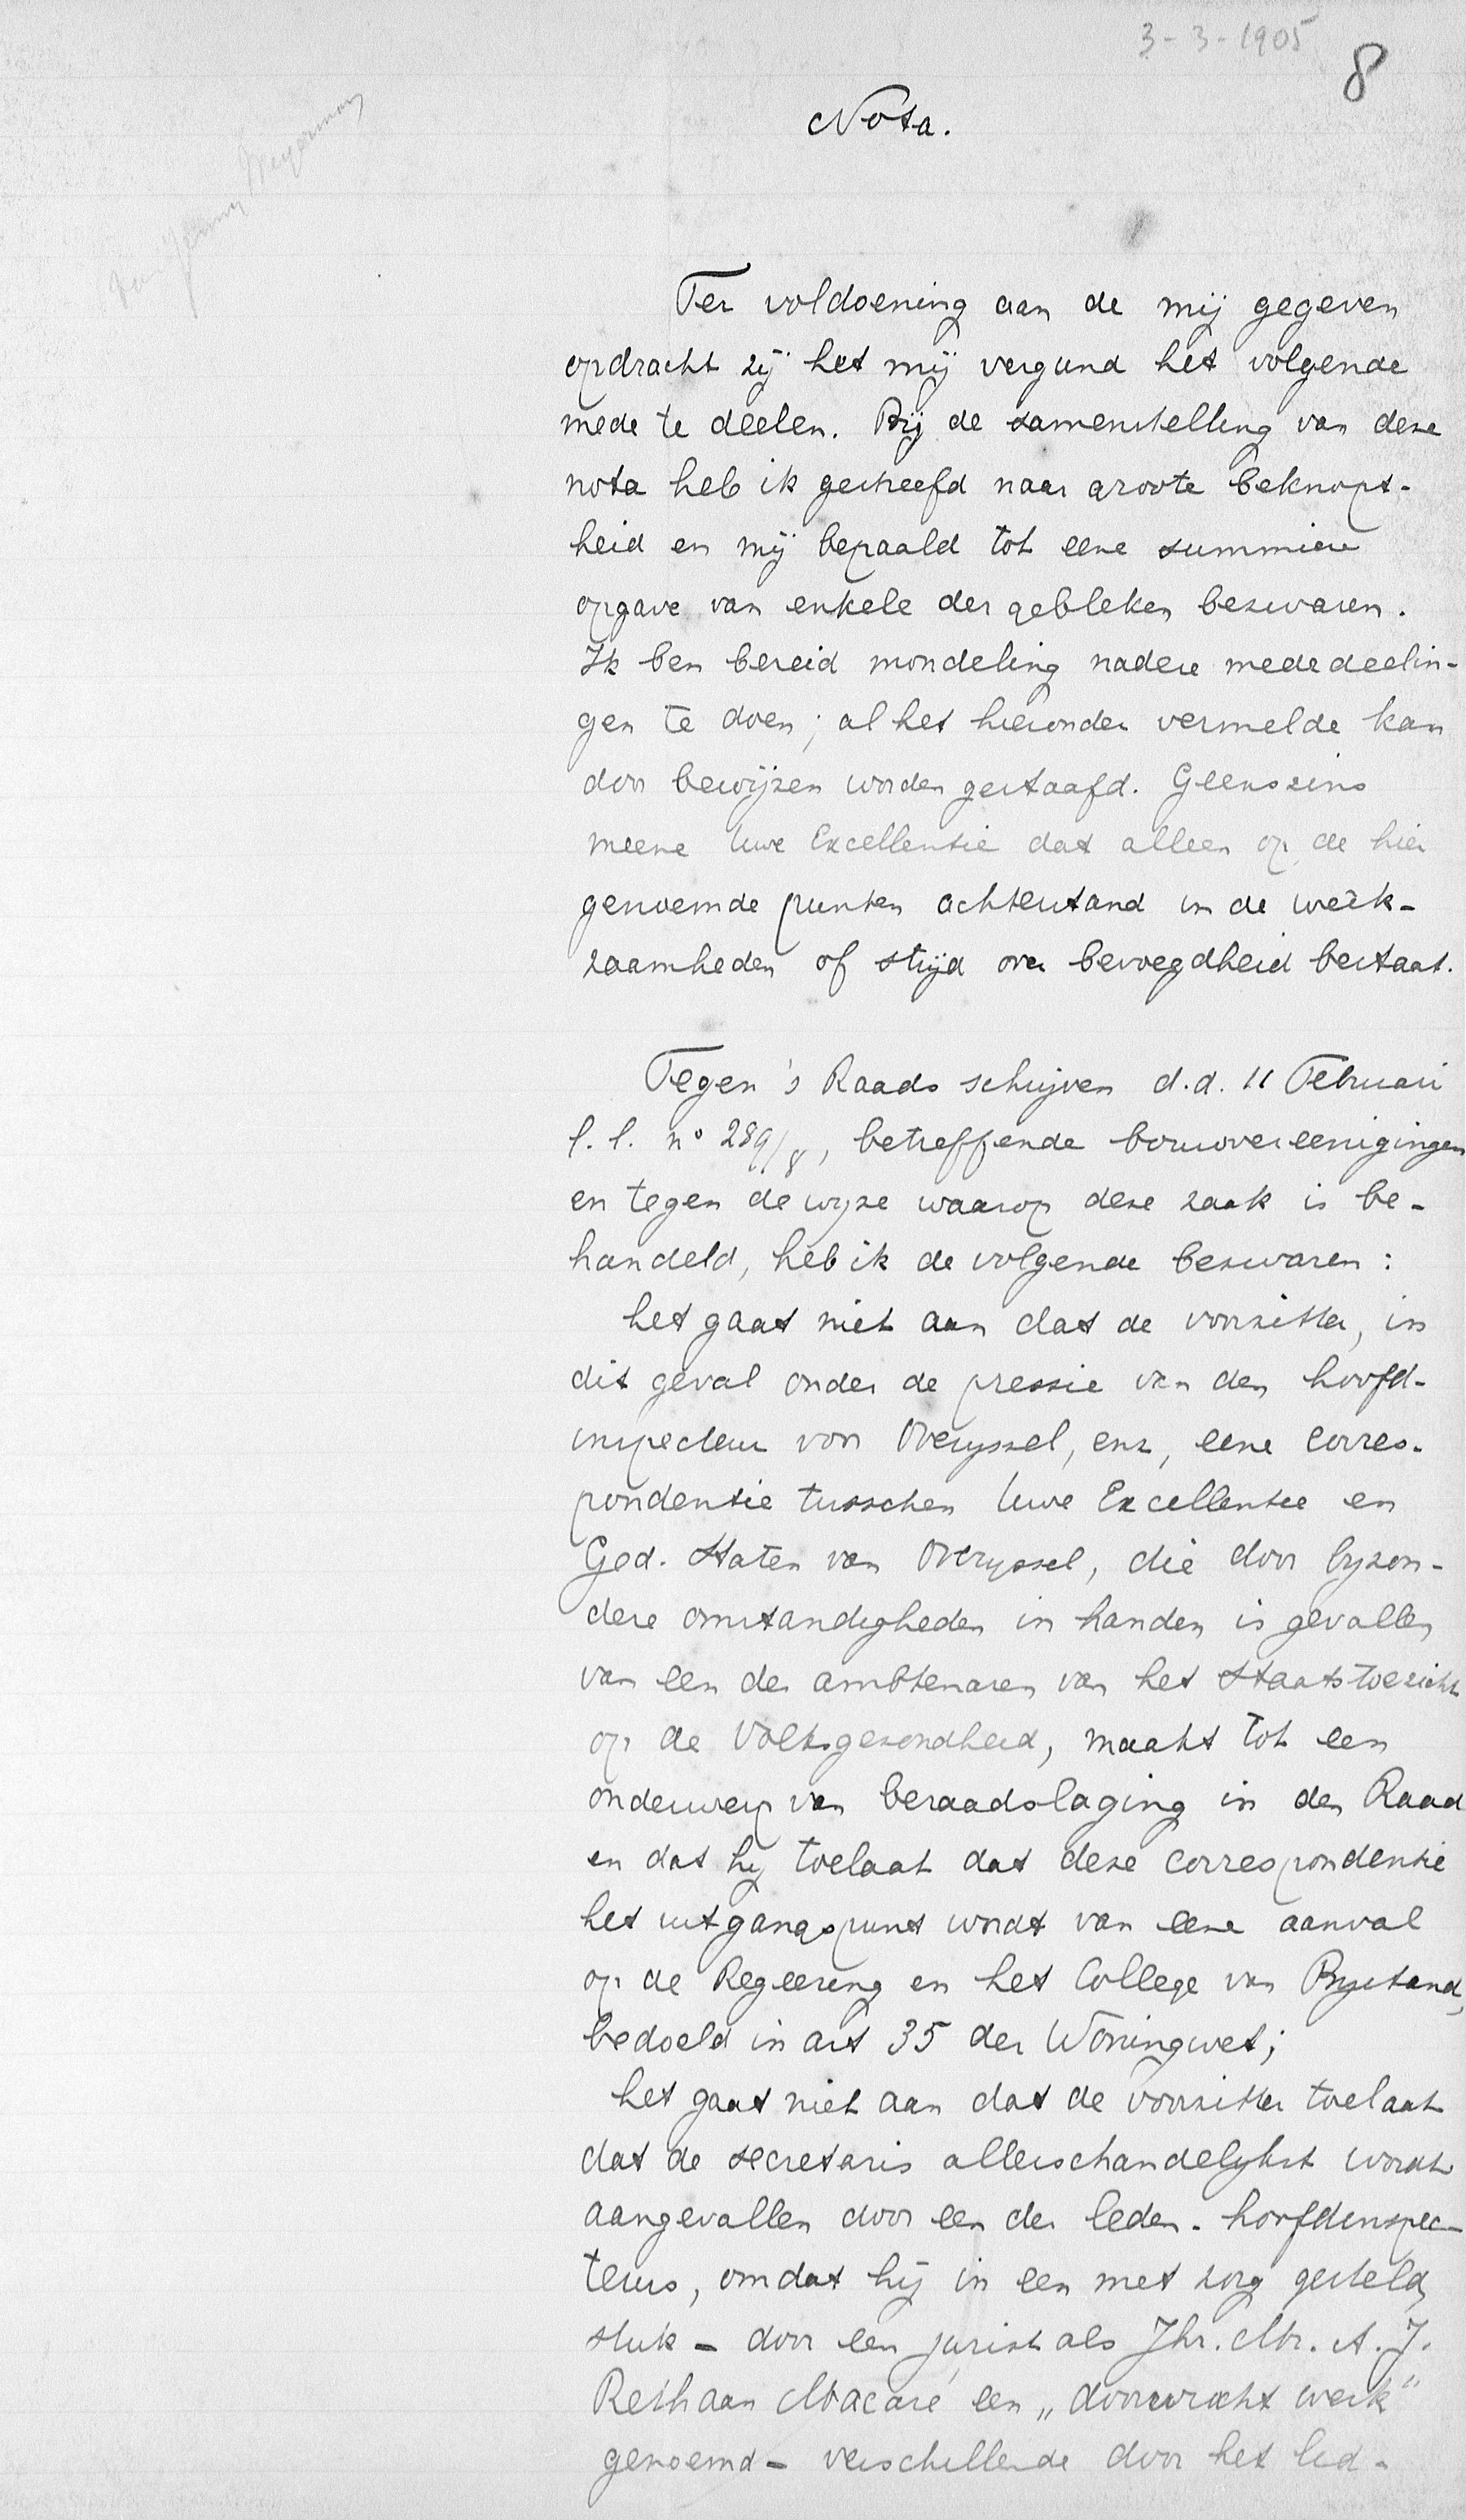 3-3-1905
8
Nota.
Ter voldoening aan de mij gegeven
opdracht zij het mij vergund het volgende
mede te deelen. Bij de samenstelling van deze
nota heb ik gestreefd naar groote beknopt-
heid en mij bepaald tot eene summiere
opgave van enkele der gebleken bezwaren.
Ik ben bereid mondeling nadere mededeelin-
gen te doen; al het hieronder vermelde kan
door bewijzen worden gestaafd. Geenszins
meene Uwe Excellentie dat alleen op de hier
genoemde punten achterstand in de werk-
zaamheden of strijd over bevoegdheid bestaat.
Tegen 's Raads schrijven d.d. 11 Februari
l.l. no 289/8, betreffende bouwvereenigingen
en tegen de wijze waarop deze zaak is be-
handeld, heb ik de volgende bezwaren:
het gaat niet aan dat de voorzitter, in
dit geval onder de pressie van den hoofd-
inspecteur voor Overyssel, enz, eene corres-
pondentie tusschen Uwe Excellentie en
Ged. Staten van Overyssel, die door byzon-
dere omstandigheden in handen is gevallen
van een der ambtenaren van het Staatstoezicht
op de Volksgezondheid, maakt tot een
onderwerp van beraadslaging in den Raad
en dat hy toelaat dat deze correspondentie
het uitgangspunt wordt van eene aanval
op de Regeering en het College van Bystand,
bedoeld in art 35 der Woningwet;
het gaat niet aan dat de voorzitter toelaat
dat de secretaris allerschandelykst wordt
aangevallen door een der leden-hoofdinspec-
teurs, omdat hij in een met zorg gesteld
stuk - door een jurist als Jhr. Mr. A. J.
Rethaan Macaré een „doorwrocht werk"
genoemd - verschillende door het lid-